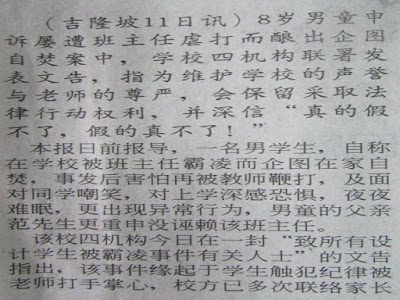 （吉隆坡11日讯）8岁男童申
诉屡遭班主任虐打而酿出企图
自焚案中，学校四机构联署发
表文告，指为维护学校的声誉
与老师的尊严，会保留采取法
律行动权利，并深信“真的假
不了，假的真不了！”
本报日前报导，一名男学生，自称
在学校被班主任霸凌而企图在家自
焚，事发后害怕再被教师鞭打，及面
对同学嘲笑，对上学深感恐惧，夜夜
难眠，更出现异常行为，男童的父亲
范先生更重申没诬赖该班主任。
该校四机构今日在一封“致所有设
计学生被霸凌事件有关人士”的文告
指出，该事件缘起于学生触犯纪律被
老师打手掌心，校方已多次联络家长